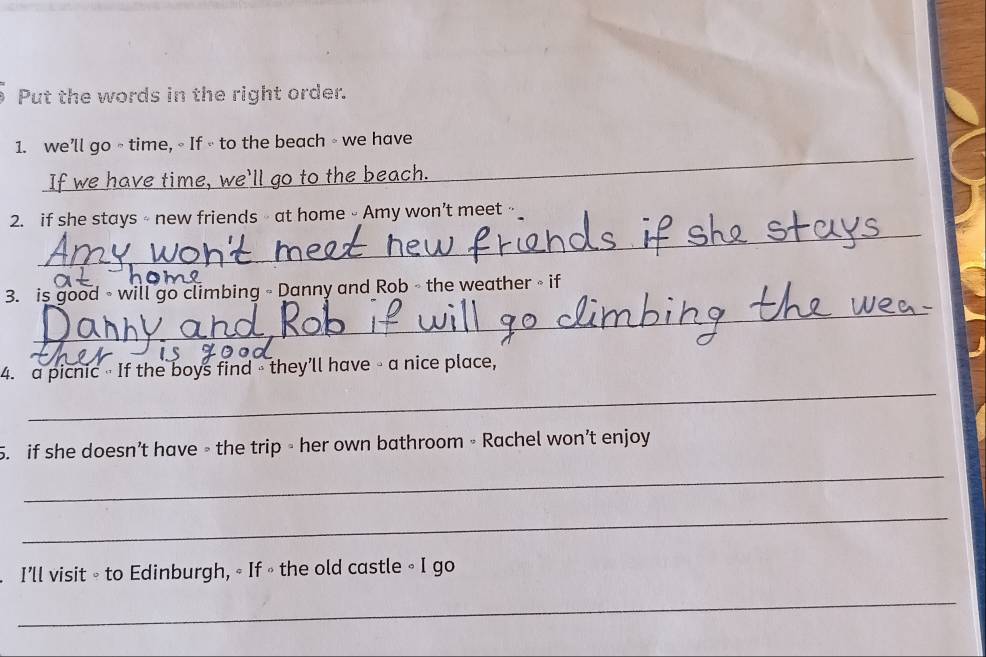 Put the words in the right order.
1. we'll go ◦ time, ◦ If ◦ to the beach ◦ we have
If we have time, we'll go to the beach.
2. if she stays ◦ new friends ◦ at home ◦ Amy won't meet ◦.
Amy won't meet new friends if she stays
at home
3. is good ◦ will go climbing ◦ Danny and Rob ◦ the weather ◦ if
Danny and Rob if will go climbing the wea-
ther is good
4. a picnic ◦ If the boys find ◦ they'll have ◦ a nice place,
5. if she doesn't have ◦ the trip ◦ her own bathroom ◦ Rachel won't enjoy
I'll visit ◦ to Edinburgh, ◦ If ◦ the old castle ◦ I go